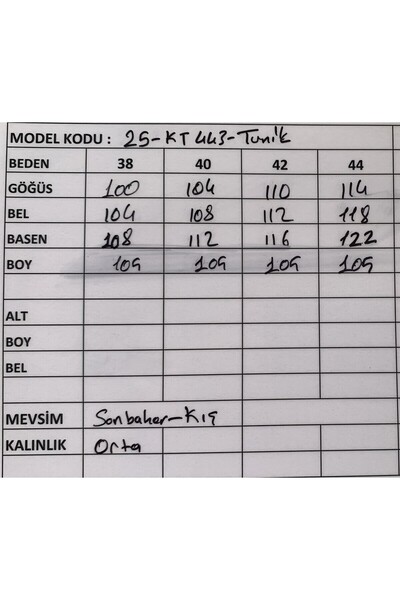 MODEL KODU : 25-KT443-Tunik
BEDEN 38 40 42 44
GÖĞÜS 100 104 110 114
BEL 104 108 112 118
BASEN 108 112 116 122
BOY 105 105 105 105
ALT
BOY
BEL
MEVSİM Sonbahar-Kış
KALINLIK Orta